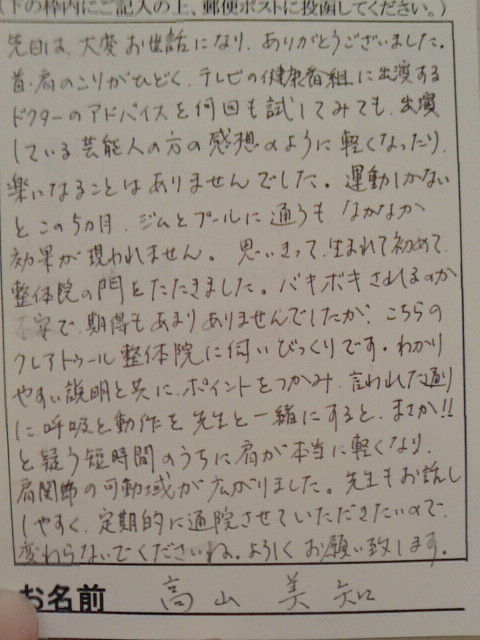 (下の枠内にご記入の上、郵便ポストに投函してください。)
先日は、大変お世話になり、ありがとうございました。
首、肩のこりがひどく、テレビの健康番組に出演する
ドクターのアドバイスを何回も試してみても、出演
している芸能人の方の感想のように軽くなったり、
楽になることはありませんでした。運動しかない
とこの5カ月、ジムとプールに通うも なかなか
効果が現われません。思いきって、生まれて初めて、
整体院の門をたたきました。バキボキされるのか
不安で、期待もあまりありませんでしたが、こちらの
クレアトゥール整体院に伺いびっくりです。わかり
やすい説明と共に、ポイントをつかみ、言われた通り
に呼吸と動作を先生と一緒にすると、まさか!!
と疑う短時間のうちに肩が本当に軽くなり、
肩関節の可動域が広がりました。先生もお話し
しやすく、定期的に通院させていただきたいので、
変わらないでくださいね。よろしくお願い致します。
お名前 高山 美知